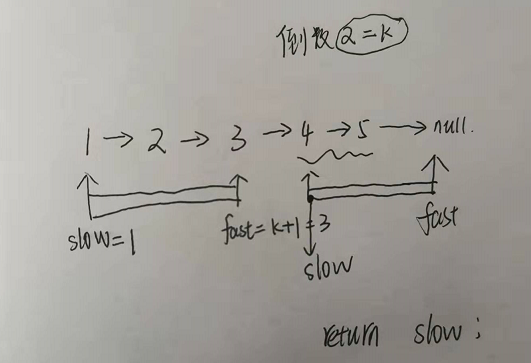 倒数 2=k
1 → 2 → 3 → 4 → 5 → null.
slow=1
fast=k+1=3
fast
slow
return slow;